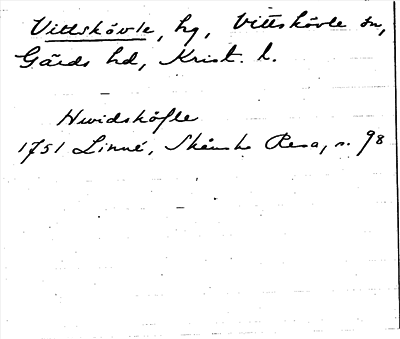 Vittskövle, hg, Vittskövle sn,
Gärds hd, Krist. l.
Hwidsköfle
1751 Linné, Skånska Resa, s. 98